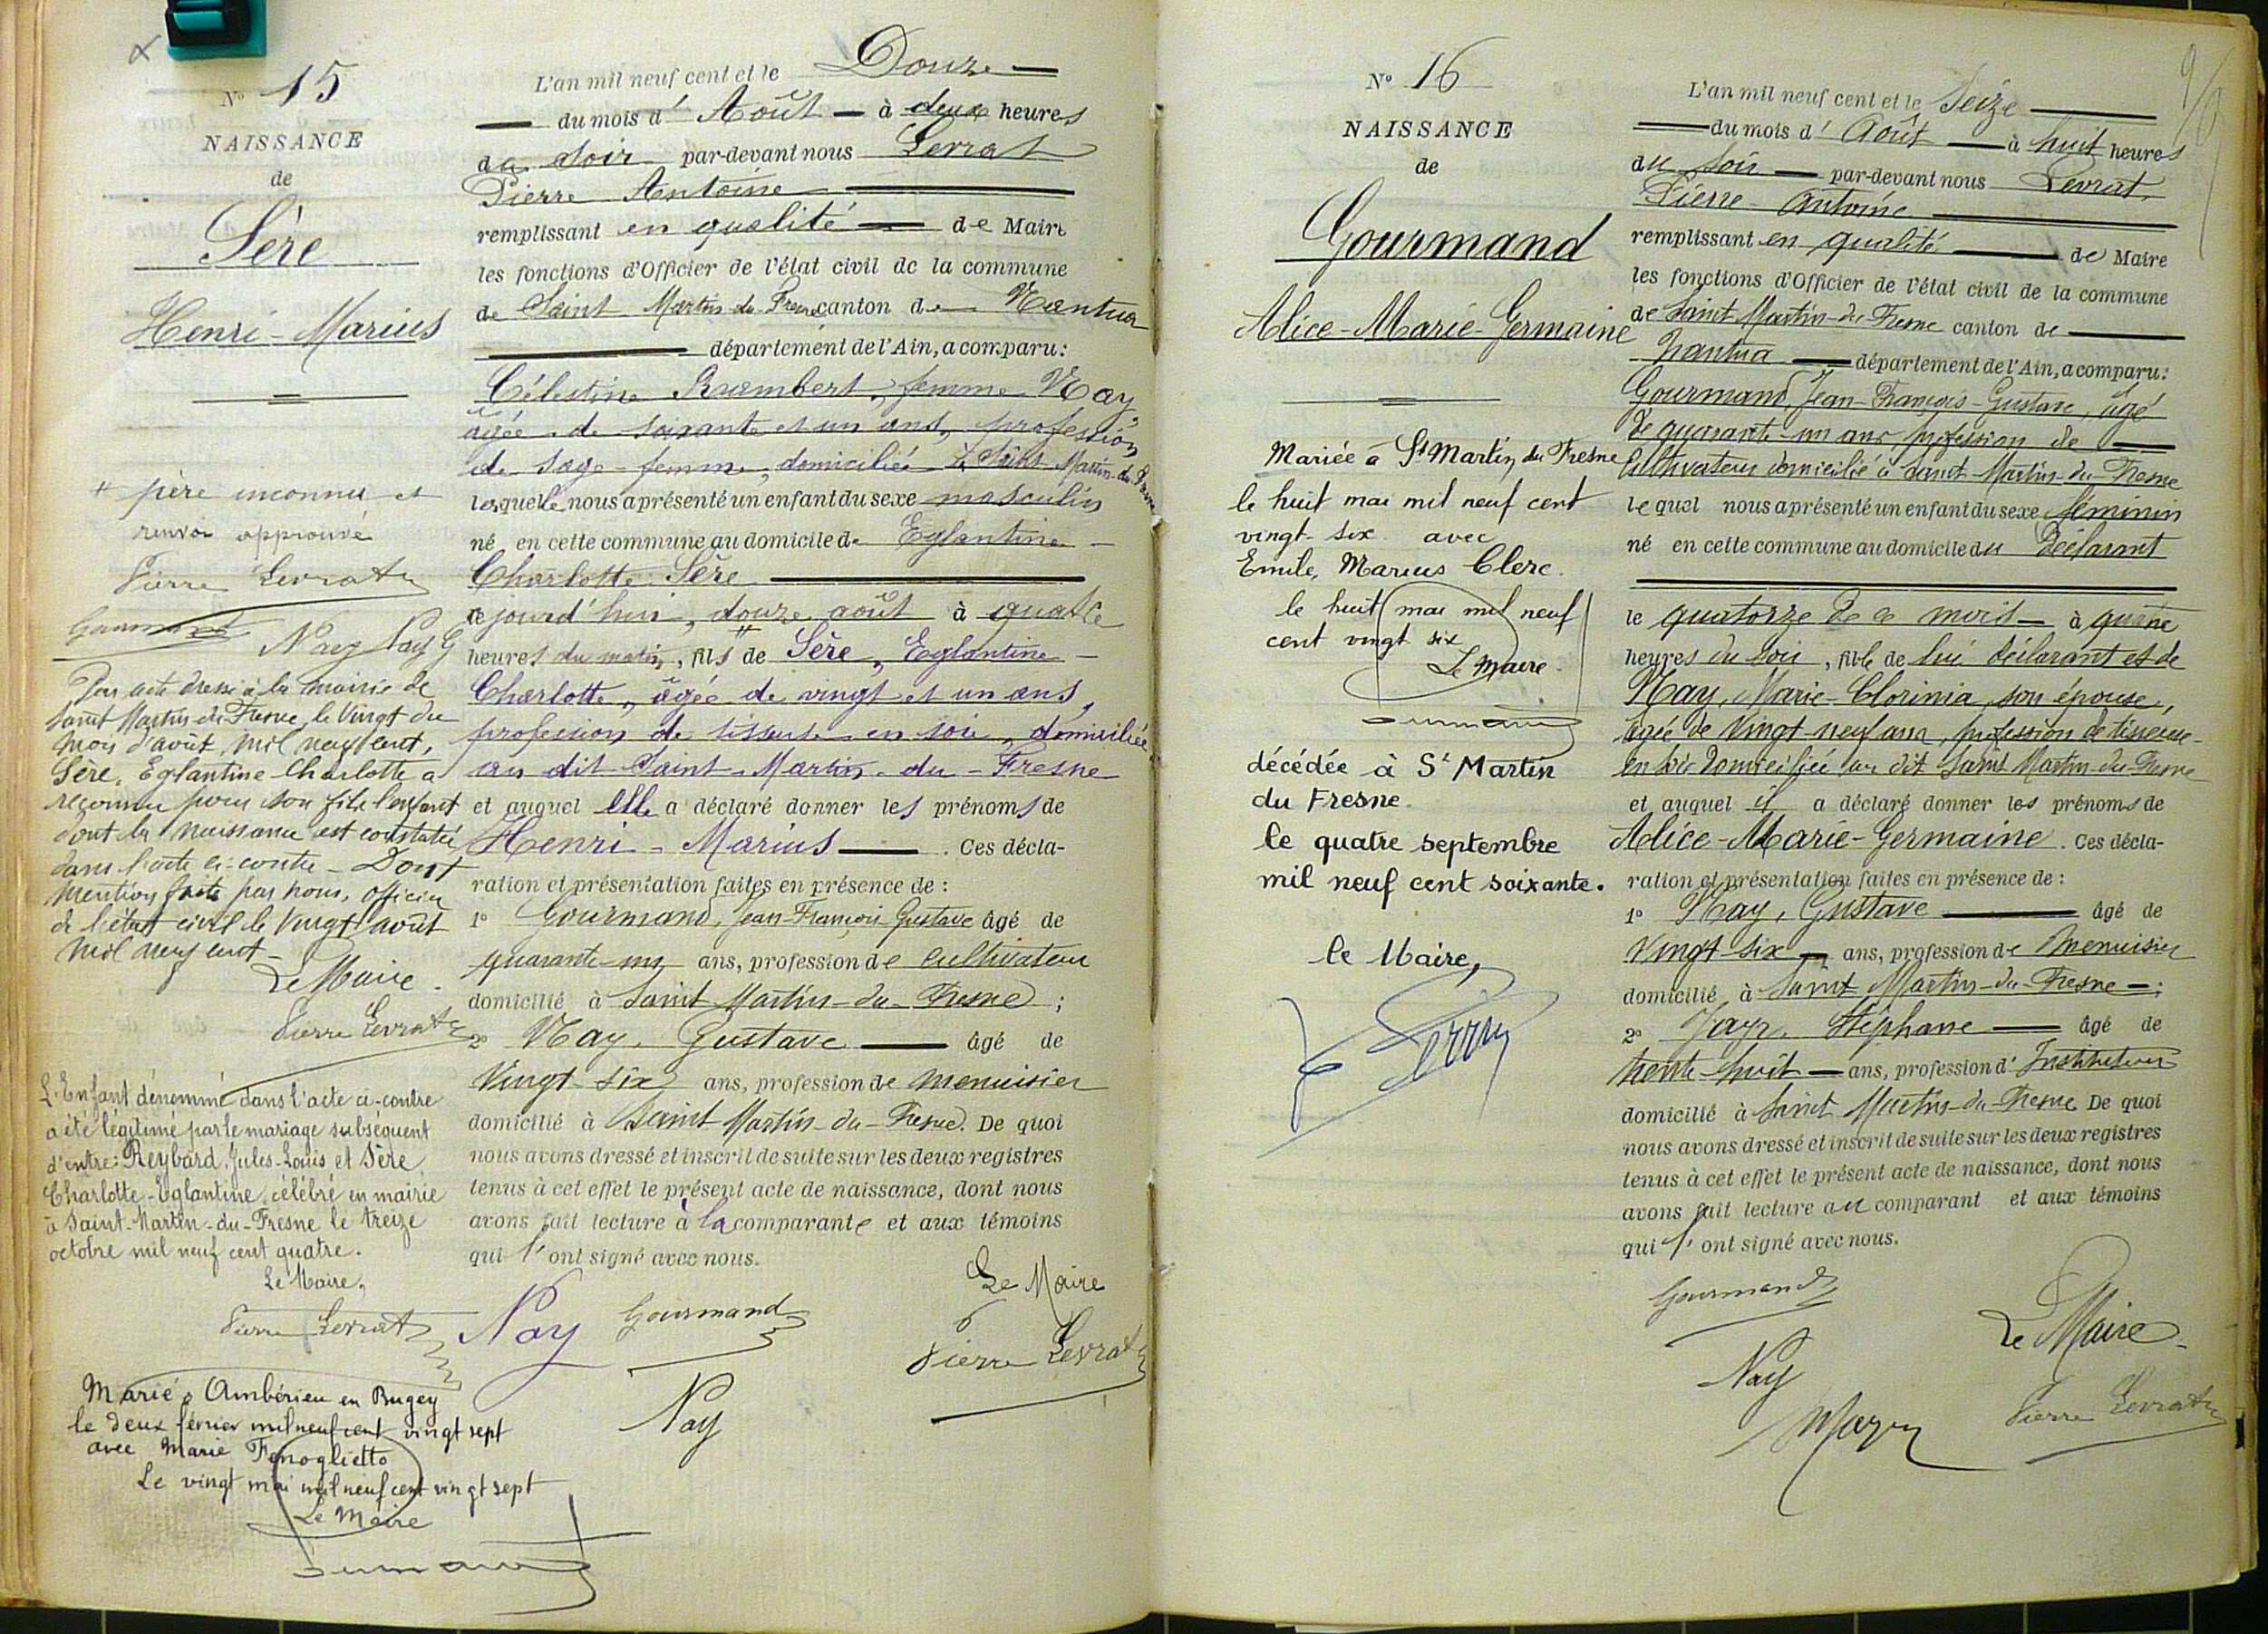 N° 15
NAISSANCE
de
Sère
Henri-Marius
# père inconnu et
renvoi approuvé
Pierre Levrat
Gourmand
Nay Nay G
Par acte dressé à la mairie de
Saint Martin-du-Fresne, le Vingt du
mois d'août mil neuf cent,
Sère, Eglantine-Charlotte a
reconnu pour son fils l'enfant
dont la naissance est constatée
dans l'acte ci-contre - Dont
mention faite par nous, officier
de l'état civil le vingt août
mil neuf cent -
Le Maire.
Pierre Levrat
L'Enfant dénommé dans l'acte ci-contre
a été légitimé par le mariage subséquent
d'entre: Reybard Jules-Louis et Sère
Charlotte-Eglantine, célébré en mairie
à Saint-Martin-du-Fresne le treize
octobre mil neuf cent quatre.
Le Maire,
Pierre Levrat
Marié à Ambérieu en Bugey
le deux février mil neuf cent vingt sept
avec Marie Fenoglietto
Le vingt mai mil neuf cent vingt sept
Le Maire
L'an mil neuf cent et le Douze
du mois d'Août à deux heures
du soir par-devant nous Levrat
Pierre Antoine
remplissant en qualité de Maire
les fonctions d'Officier de l'état civil de la commune
de Saint Martin-du-Fresne canton de Nantua
département de l'Ain, a comparu:
Célestine Rambert, femme Nay,
âgée de soixante et un ans, profession
de sage-femme, domiciliée à Saint Martin-du-Fresne
laquelle nous a présenté un enfant du sexe masculin
né en cette commune au domicile de Eglantine
Charlotte Sère
cejourd'hui, douze août à quatre
heures du matin, # fils de Sère, Eglantine
Charlotte, âgée de vingt et un ans,
profession de tisseuse en soie, domiciliée
au dit Saint-Martin-du-Fresne
et auquel elle a déclaré donner les prénoms de
Henri-Marius. Ces décla-
ration et présentation faites en présence de :
1° Gourmand, Jean François Gustave âgé de
quarante-un ans, profession de cultivateur
domicilié à Saint Martin-du-Fresne ;
2° Nay, Gustave âgé de
Vingt-six ans, profession de menuisier
domicilié à Saint Martin-du-Fresne. De quoi
nous avons dressé et inscrit de suite sur les deux registres
tenus à cet effet le présent acte de naissance, dont nous
avons fait lecture à la comparante et aux témoins
qui l'ont signé avec nous.
Le Maire
Nay Gourmand
Pierre Levrat
Nay
N° 16
NAISSANCE
de
Gourmand
Alice-Marie-Germaine
Mariée à St Martin du Fresne
le huit mai mil neuf cent
vingt-six avec
Emile, Marius Clerc.
le huit mai mil neuf
cent vingt six
Le Maire.
décédée à St Martin
du Fresne.
le quatre septembre
mil neuf cent soixante.
le Maire,
L'an mil neuf cent et le Seize
du mois d'Août à huit heures
du soir par-devant nous Levrat,
Pierre Antoine
remplissant en qualité de Maire
les fonctions d'Officier de l'état civil de la commune
de Saint Martin-du-Fresne canton de
Nantua département de l'Ain, a comparu:
Gourmand, Jean-François-Gustave, âgé
de quarante-un ans, profession de
Cultivateur domicilié à Saint-Martin-du-Fresne
lequel nous a présenté un enfant du sexe féminin
né en cette commune au domicile du Déclarant
le quatorze de ce mois à quatre
heures du soir, fille de lui déclarant et de
Nay, Marie-Clorinia, son épouse,
âgée de Vingt-neuf ans, profession de tisseuse
en soie domiciliée au dit Saint Martin-du-Fresne
et auquel il a déclaré donner les prénoms de
Alice-Marie-Germaine. Ces décla-
ration et présentation faites en présence de :
1° Nay, Gustave âgé de
Vingt-six ans, profession de menuisier
domicilié à Saint Martin-du-Fresne ;
2° Stéphane âgé de
trente-huit ans, profession d'Instituteur
domicilié à Saint Martin-du-Fresne De quoi
nous avons dressé et inscrit de suite sur les deux registres
tenus à cet effet le présent acte de naissance, dont nous
avons fait lecture au comparant et aux témoins
qui l'ont signé avec nous.
Gourmand
Le Maire
Nay
Pierre Levrat